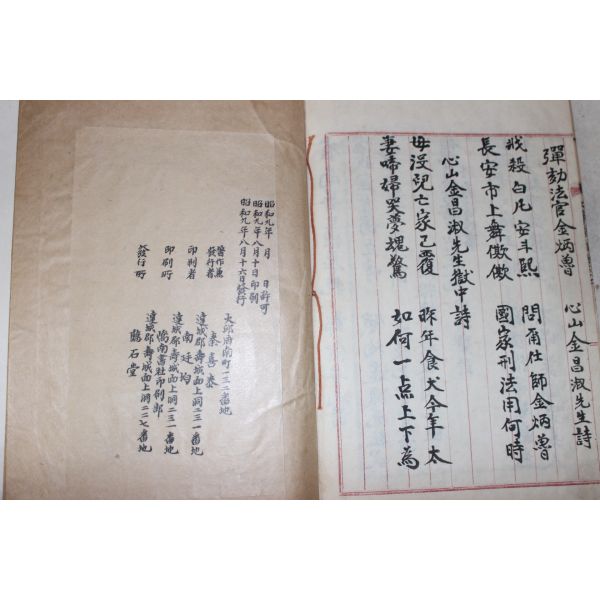 彈劾法官金炳魯 心山金昌淑先生詩
戕殺白凡安斗熙 問爾仕師金炳魯
長安市上舞僛僛 國家刑法用何時
心山金昌淑先生獄中詩
母没兒亡家己覆 昨年食犬今年太
妻啼婦哭夢魂驚 如何一点上下爲
昭和九年 月 日許可
昭和九年八月十日印刷
昭和九年八月十六日發行
大邱府南町一三二番地
著作兼
發行者 秦喜泰
達城郡壽城面上洞二三一番地
印刷者 南廷均
達城郡壽城面上洞二三一番地
印刷所 嶠南書社印刷部
達城郡壽城面上洞二二七番地
發行所 鶴石堂